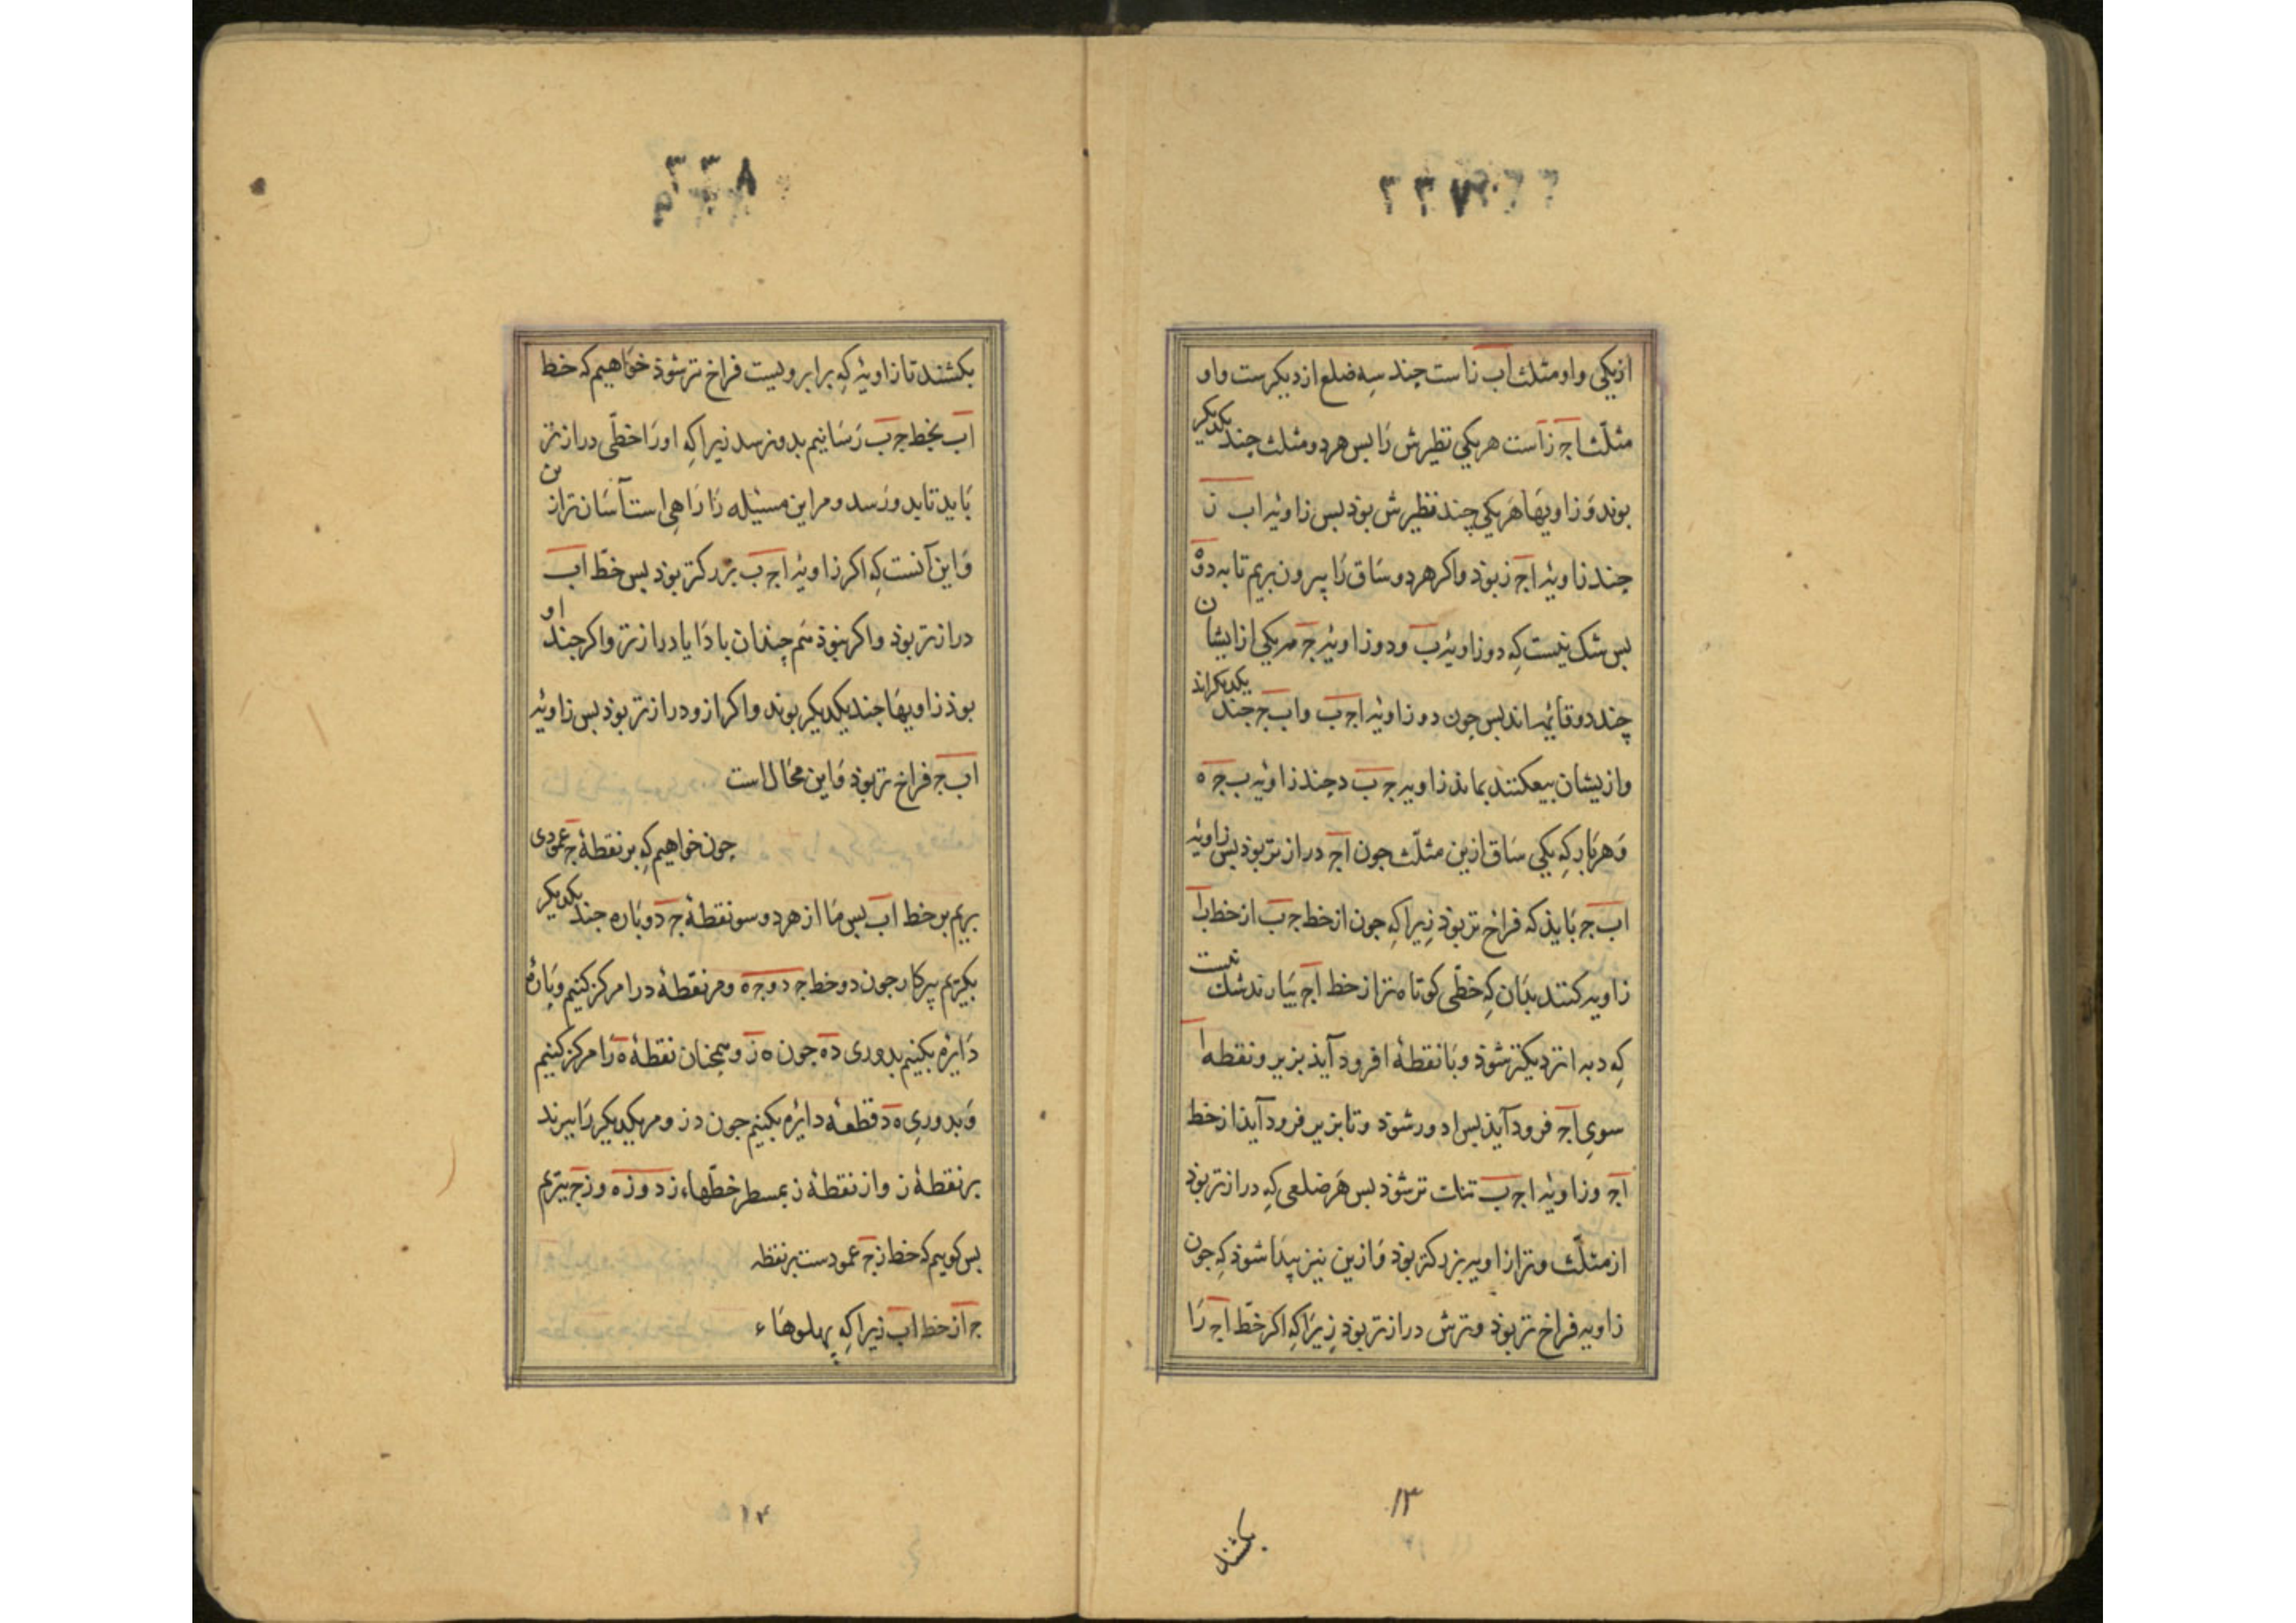 ۳۳۷
ازیکی واو مثلث اب ز است چند سه ضلع از دیکرست واو
مثلّث اج ز است هر یکی نظیرش را بس هر دو مثلث چند یکدیکر
بوند و زاویها هر یکی چند نظیرش بوذ بس زاویۀ اب ز
چند زاویۀ اج ز بوذ واکر هر دو ساق را بیرون بریم تا به د و ه
بس شک نیست که دو زاویۀ ب و دو زاویۀ ج هر یکی از ایشان
چند دو قائمه‌اند بس چون دو زاویۀ اج ب واب ج چند یکدیکراند
واز یشان بیفکنند بماند زاویه ج ب د چند زاویۀ ب ج ه
و هر بار که یکی ساق ازین مثلّث چون اج دراز تر بوذ بس زاویۀ
اب ج باید که فراخ تر بوذ زیرا که چون از خط ج ب از خط با
زاویه کنند بدان که خطّی کوتاه تر از خط اج بیارند شک نیست
که د به ا نزدیکتر شوذ و با نقطۀ ا فرود آیذ بزیر و نقطه ا
سوی اج فرود آیذ بس ا دور شوذ و تا بزیر فرود آیذ از خط
اج و زاویۀ اج ب تنک تر شوذ بس هر ضلعی که دراز تر بوذ
از مثلّث وتر از زاویه بزرکتر بوذ و ازین نیز بیدا شوذ که چون
زاویه فراخ تر بوذ وترش دراز تر بوذ زیرا که اکر خطّ اج را
۱۳
بکشند
۳۳۸
بکشند تا زاویۀ که برابر ویست فراخ تر شوذ خواهیم که خط
اب بخط ج ب رسانیم بدو نرسد زیرا که او را خطّی دراز تر
باید تا بدو رسد و مر این مسئیله را راهی است آسان تر ازین
و این آنست که اکر زاویۀ اج ب بزرکتر بوذ بس خطّ اب
دراز تر بوذ واکر نبوذ هم چندان باد ا یا دراز تر واکر چند او
بوذ زاویها چند یکدیکر بوند واکر ازو دراز تر بوذ بس زاویۀ
اب ج فراخ تر بوذ و این محال است
چون خواهیم که بر نقطۀ ج عمودی
بریم بر خط اب بس ما از هر دو سو نقطۀ ج دو باره چند یکدیکر
بکیریم بپرکار چون دو خط ج د و ج ه و مر نقطۀ د را مرکز کنیم و بارۀ
دایره بکنیم بدوری د ه چون ه ز و همچنان نقطۀ ه را مرکز کنیم
و بدوری ه د قطعۀ دایره بکنیم چون د ز و مر یکدیکر را ببرند
بر نقطۀ ز و از نقطۀ ز بمسطر خطّهاء ز د و ز ه و ز ج ببریم
بس کوییم که خط ز ج عمودست بر نقطه
ج از خط اب زیرا که پهلوهاء
۱۴